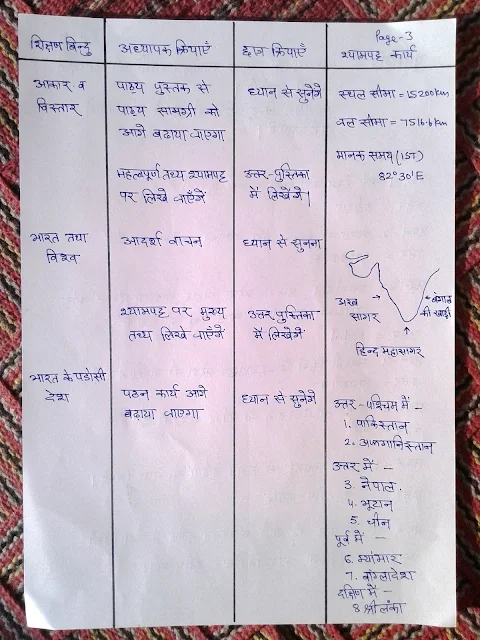 Page-3
शिक्षण बिन्दु
अध्यापक क्रियाएँ
छात्र क्रियाएँ
श्यामपट्ट कार्य
आकार व
विस्तार
पाठ्य पुस्तक से
पाठ्य सामग्री को
आगे बढाया जाएगा
ध्यान से सुनेगें
स्थल सीमा = 15200km
जल सीमा = 7516.6km
मानक समय (IST)
82°30'E
महत्वपूर्ण तथ्य श्यामपट्ट
पर लिखे जाएँगें
उत्तर-पुस्तिका
में लिखेंगें।
भारत तथा
विश्व
आदर्श वाचन
ध्यान से सुनना
अरब
सागर
बंगाल
की खाड़ी
हिन्द महासागर
श्यामपट्ट पर मुख्य
तथ्य लिखे जाएँगें
उत्तर पुस्तिका
में लिखेगें
भारत के पडोसी
देश
पठन कार्य आगे
बढाया जाएगा
ध्यान से सुनेगें
उत्तर-पश्चिम में -
1. पाकिस्तान
2. अफगानिस्तान
उत्तर में -
3. नेपाल.
4. भूटान
5. चीन
पूर्व में -
6. म्यांमार
7. बांग्लादेश
दक्षिण में -
8 श्रीलंका